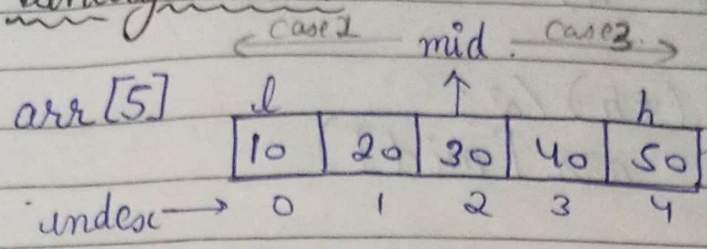 case 1 mid. case 3.
arr[5] l h
10 20 30 40 50
index → 0 1 2 3 4